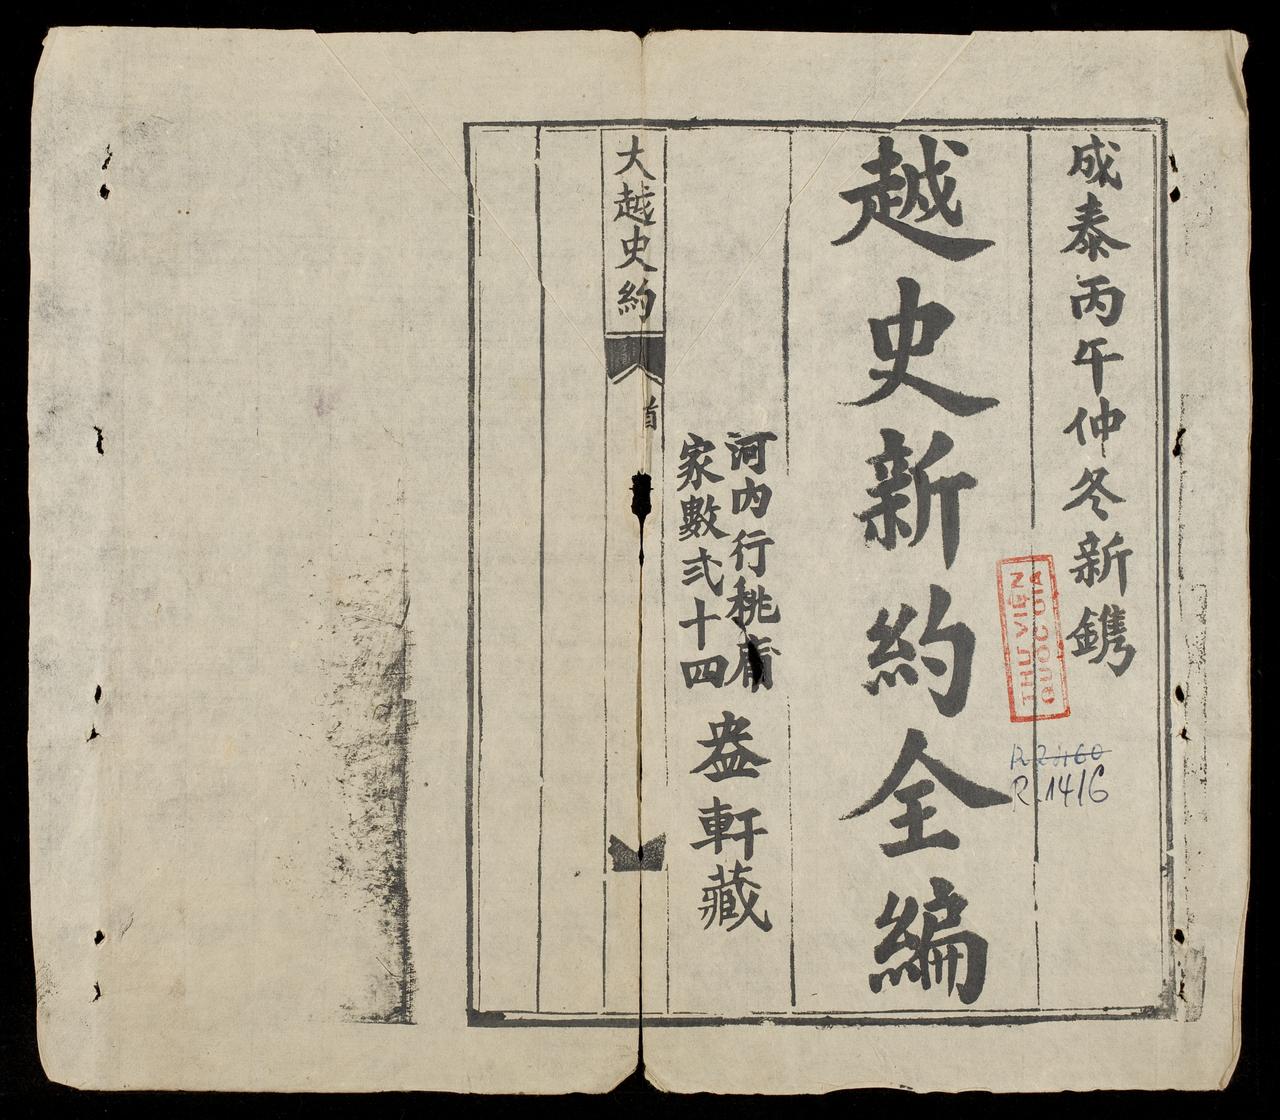 成泰丙午仲冬新鐫
越史新約全編
河内行桃庯
家數弍十四
盎軒藏
大越史約
首
THƯ VIỆN
QUỐC GIA
R 2460
R.1416